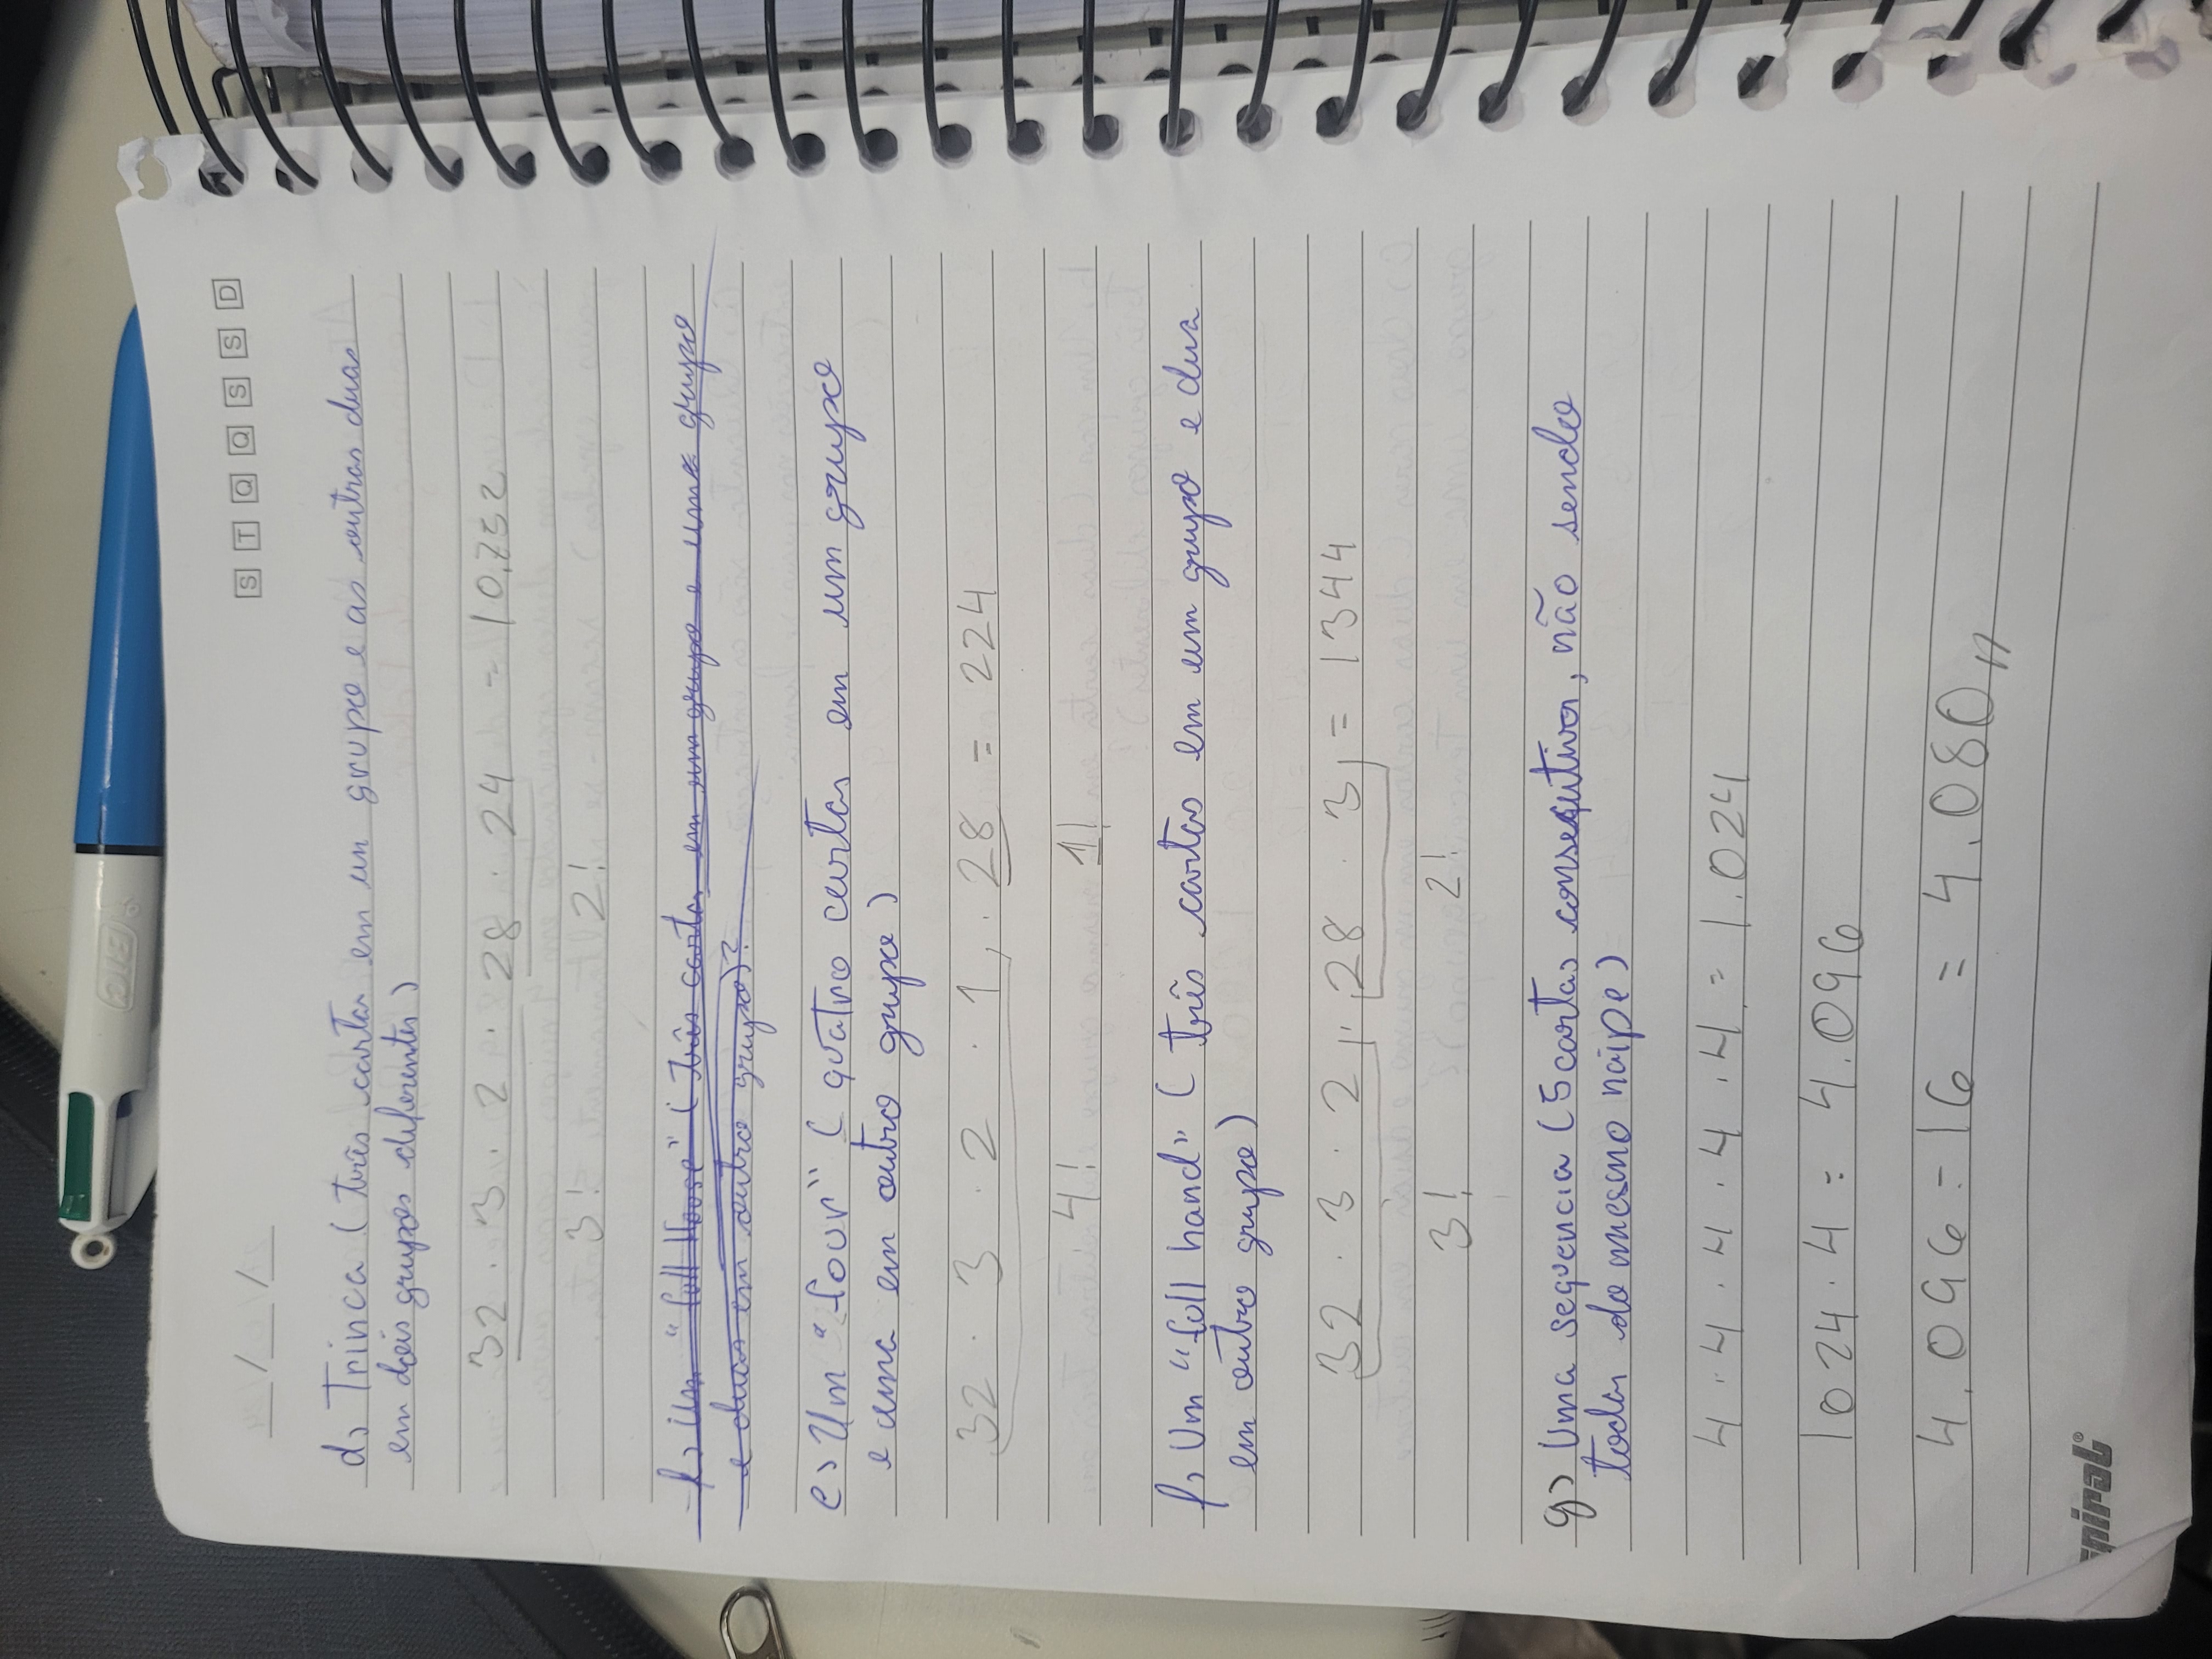 BIC
__/__/__
S T Q Q S S D
d) Trinca (três carta em un grupo e as outras duas
em dois grupos diferentes)
32 . 3 . 2 . 28 . 24 = 10.752
3! 2!
f) Um "full House" (três carta em um grupo e uma grupo
e duas em outro grupo)?
e) Um "four" (quatro cartas em um grupo
e uma em outro grupo)
32 . 3 . 2 . 1 . 28 = 224
4! 1!
f) Um "full hand" (três cartas em um grupo e dua
em outro grupo)
32 . 3 . 2 . 28 . 3 = 1344
3! 2!
g) Uma sequencia (5 cartas consequtiva, não sendo
todas do mesmo naipe)
4 . 4 . 4 . 4 . 4 = 1.024
1024 . 4 = 4.096
4.096 - 16 = 4.080,,
spiral®